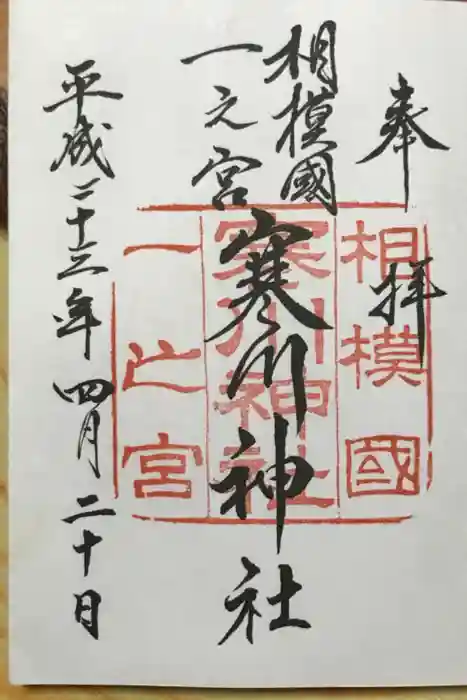 奉拝
相模國
一之宮
寒川神社
平成二十三年四月二十日
相模國
寒川神社
一之宮